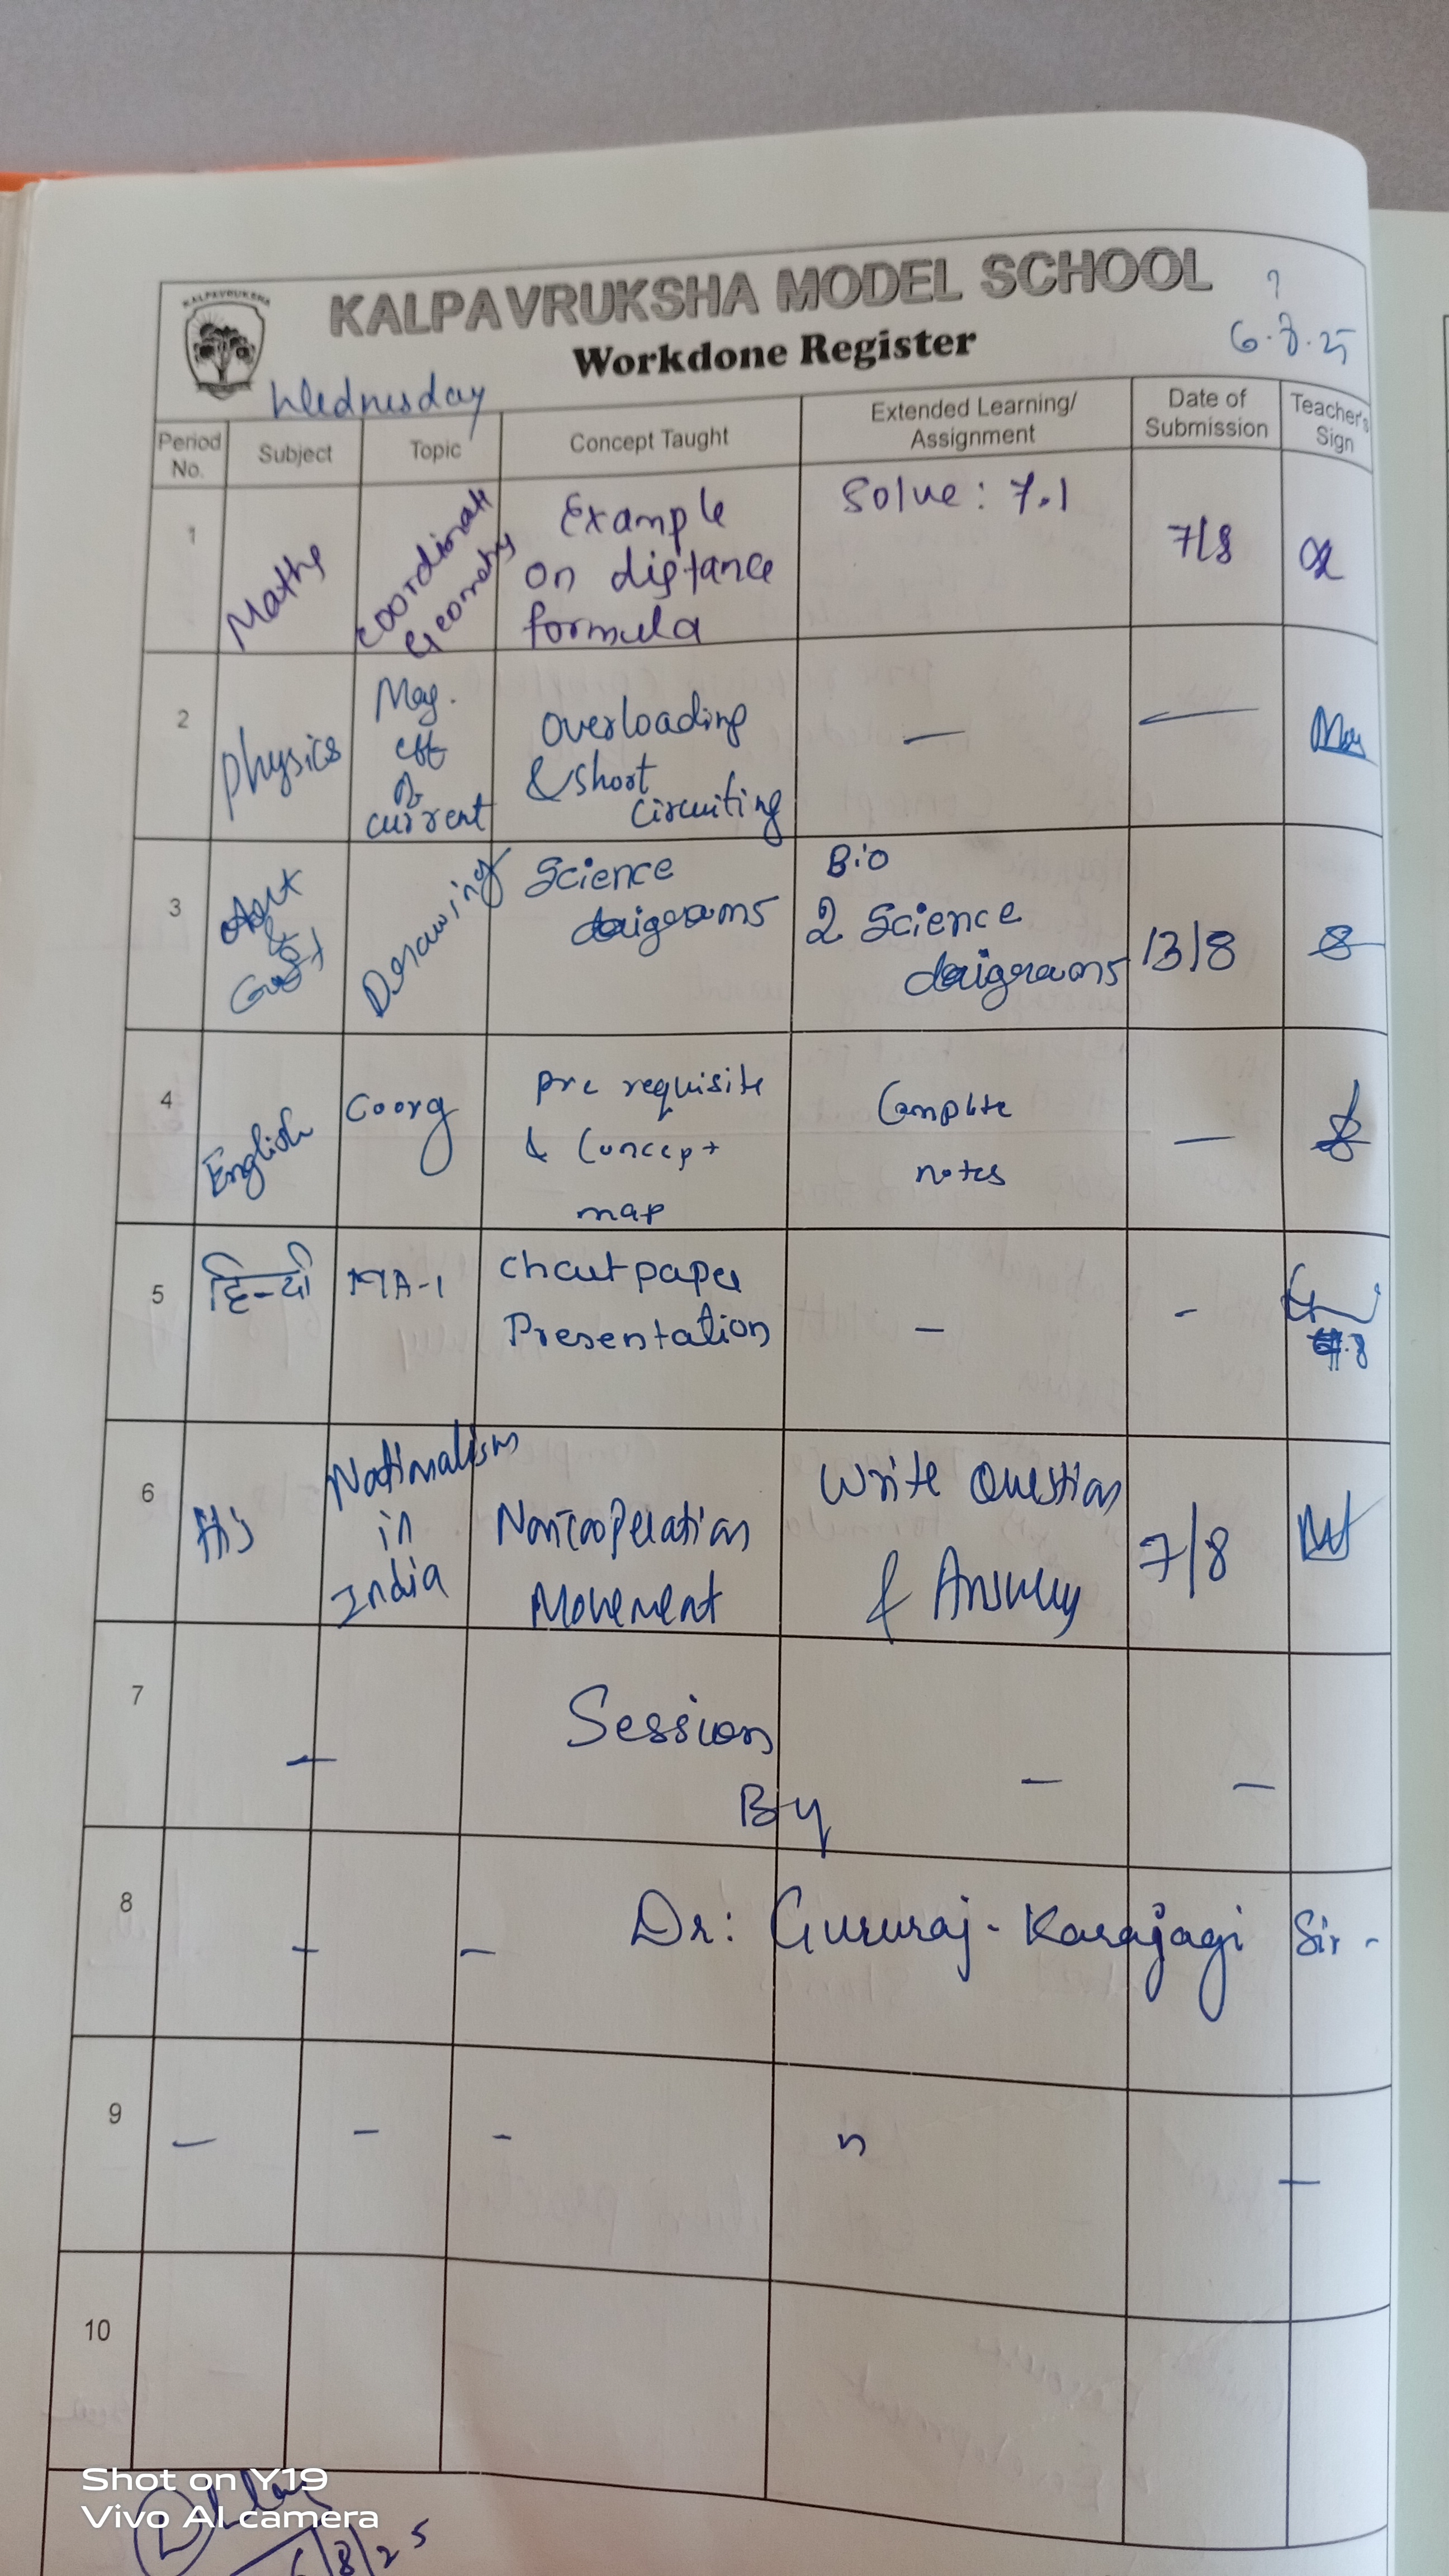 KALPAVRUKSHA
KALPAVRUKSHA MODEL SCHOOL
Workdone Register
6.8.25
Wednesday
Period No.
Subject
Topic
Concept Taught
Extended Learning/
Assignment
Date of
Submission
Teacher's
Sign
1
Maths
Coordinate
Geometry
Example
on distance
formula
Solve: 7.1
7/8
2
Physics
Mag.
eff
of
current
Overloading
& short
circuiting
—
—
3
Art
&
Craft
Drawing
Science
daigrams
Bio
2 Science
daigrams
13/8
4
English
Coorg
pre requisite
& Concept
map
Complete
notes
—
5
हिन्दी
MA-1
Chart paper
Presentation
—
-
6
His
Nationalism
in
India
Noncooperation
Movement
Write Question
& Answer
7/8
7
—
Session
By
—
—
8
—
—
Dr: Gururaj - Karajagi Sir -
9
—
-
-
—
10
Shot on Y19
Vivo AI camera
6/8/25